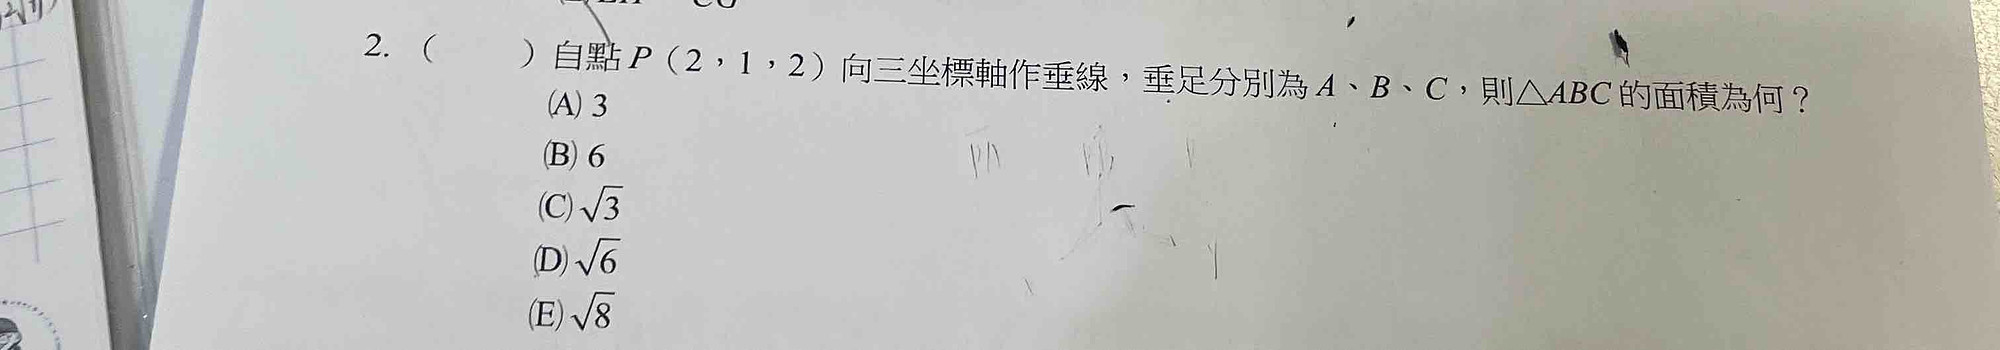 2. (　　) 自點 P（2，1，2）向三坐標軸作垂線，垂足分別為 A、B、C，則△ABC 的面積為何？
(A) 3
(B) 6
(C) √3
(D) √6
(E) √8